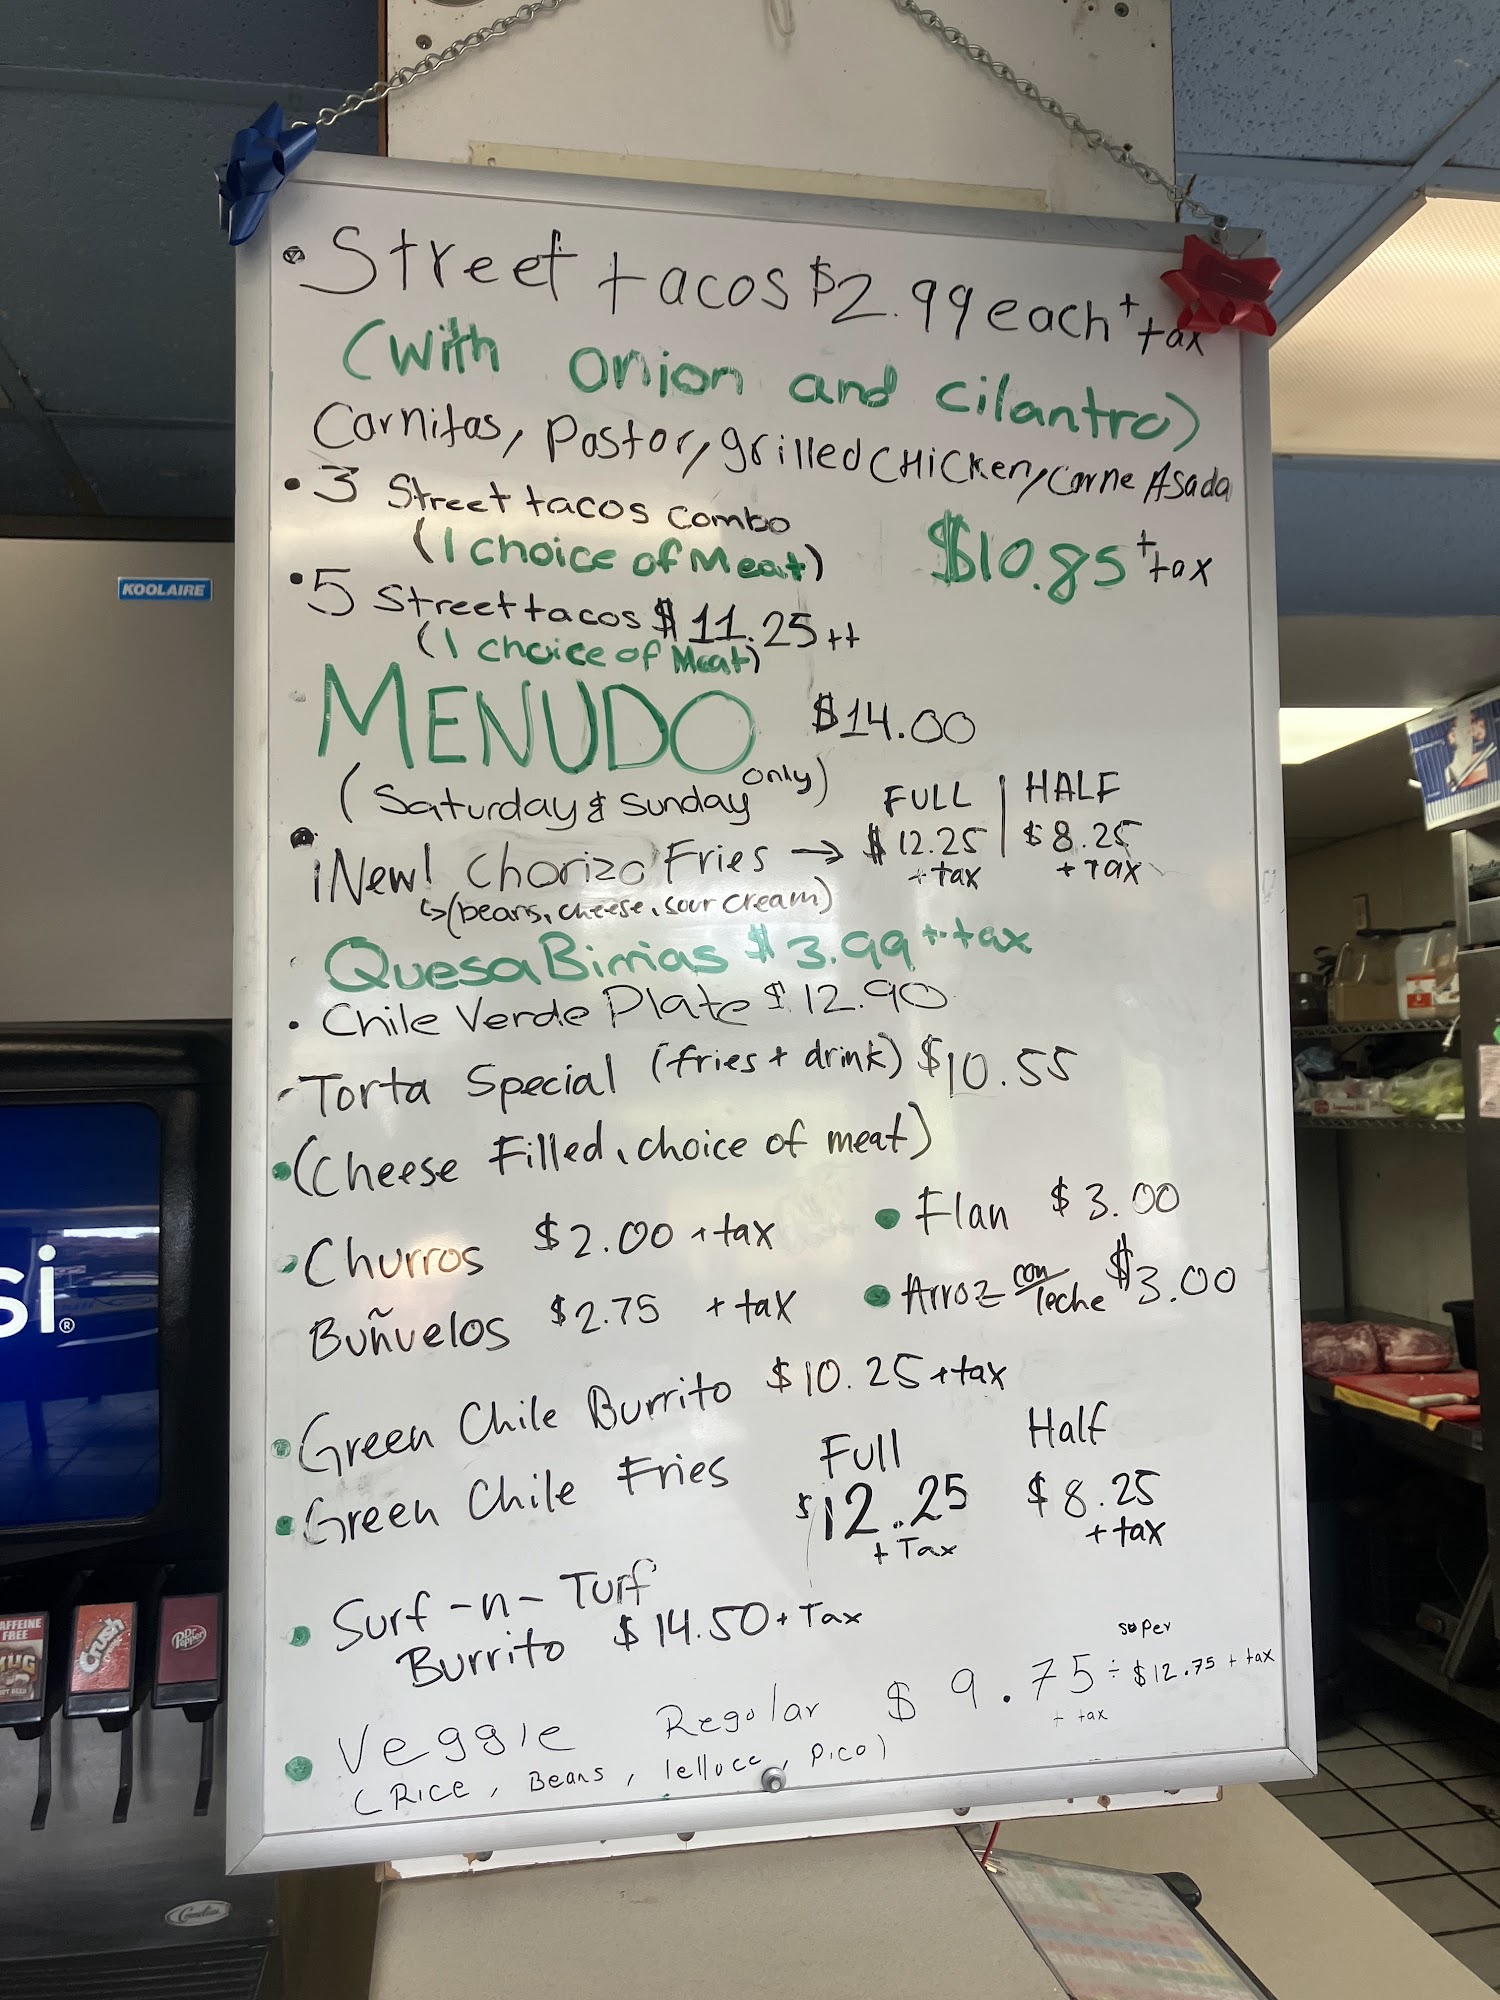 • Street tacos $2.99 each + tax
(with onion and cilantro)
Carnitas, Pastor, grilled CHicken, Carne Asada
• 3 Street tacos combo
(1 choice of Meat) $10.85 + tax
• 5 Street tacos $11.25 ++
(1 choice of Meat)
MENUDO $14.00
(Saturday & Sunday only)
FULL | HALF
¡New! Chorizo Fries → $12.25 + tax | $8.25 + Tax
↳(beans, cheese, sour cream)
QuesaBirrias $3.99 + tax
• Chile Verde Plate $12.90
- Torta Special (fries + drink) $10.55
• (Cheese Filled, choice of meat)
• Churros $2.00 + tax
• Flan $3.00
Buñuelos $2.75 + tax
• Arroz con leche $3.00
• Green Chile Burrito $10.25 + tax
Full Half
• Green Chile Fries $12.25 + Tax $8.25 + tax
• Surf-n-Turf
Burrito $14.50 + Tax
super
• Veggie Regular $9.75 + tax ÷ $12.75 + tax
(Rice, Beans, lettuce, Pico)
KOOLAIRE
si®
CAFFEINE
FREE
MUG
Crush
Dr Pepper
Cornelius